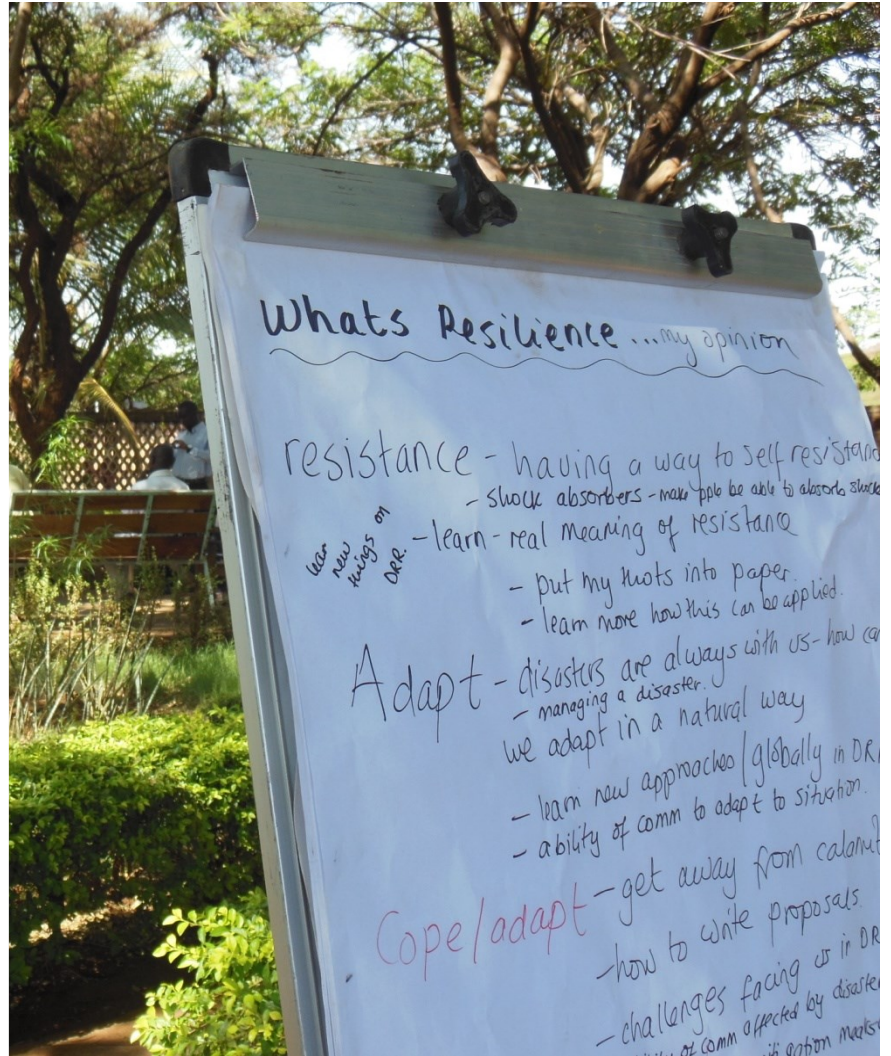 Whats Resilience ... my opinion
resistance - having a way to self
- shock absorbers - make pple be able to absorb
lear new things on DRR.
- learn - real meaning of resistance
- put my thots into paper.
- learn more how this can be applied.
Adapt - disasters are always with us - how can
- managing a disaster.
we adapt in a natural way
- learn new approaches / globally in
- ability of comm to adapt to situation.
Cope/adapt - get away from
- how to write proposals.
- challenges facing us in
of comm affected by